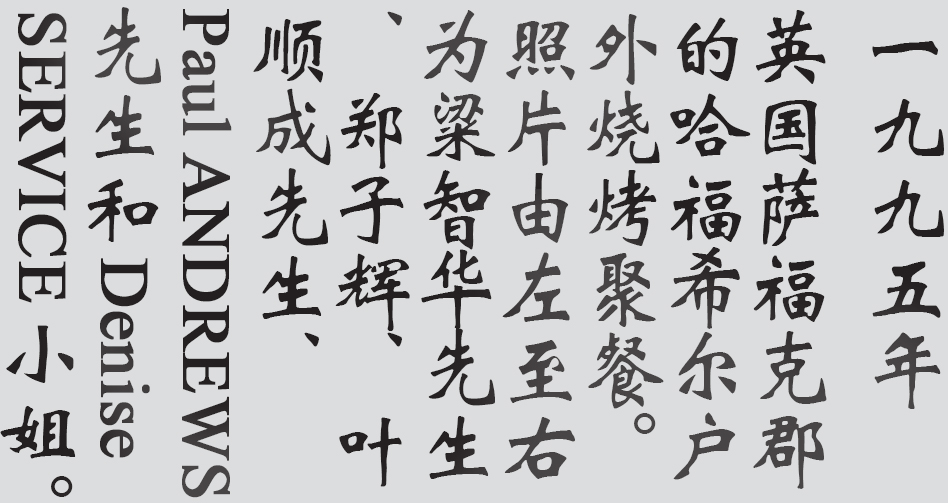 一九九五年
英国萨福克郡
的哈福希尔户
外烧烤聚餐。
照片由左至右
为梁智华先生
、郑子辉、叶
顺成先生、
Paul ANDREWS
先生和Denise
SERVICE小姐。